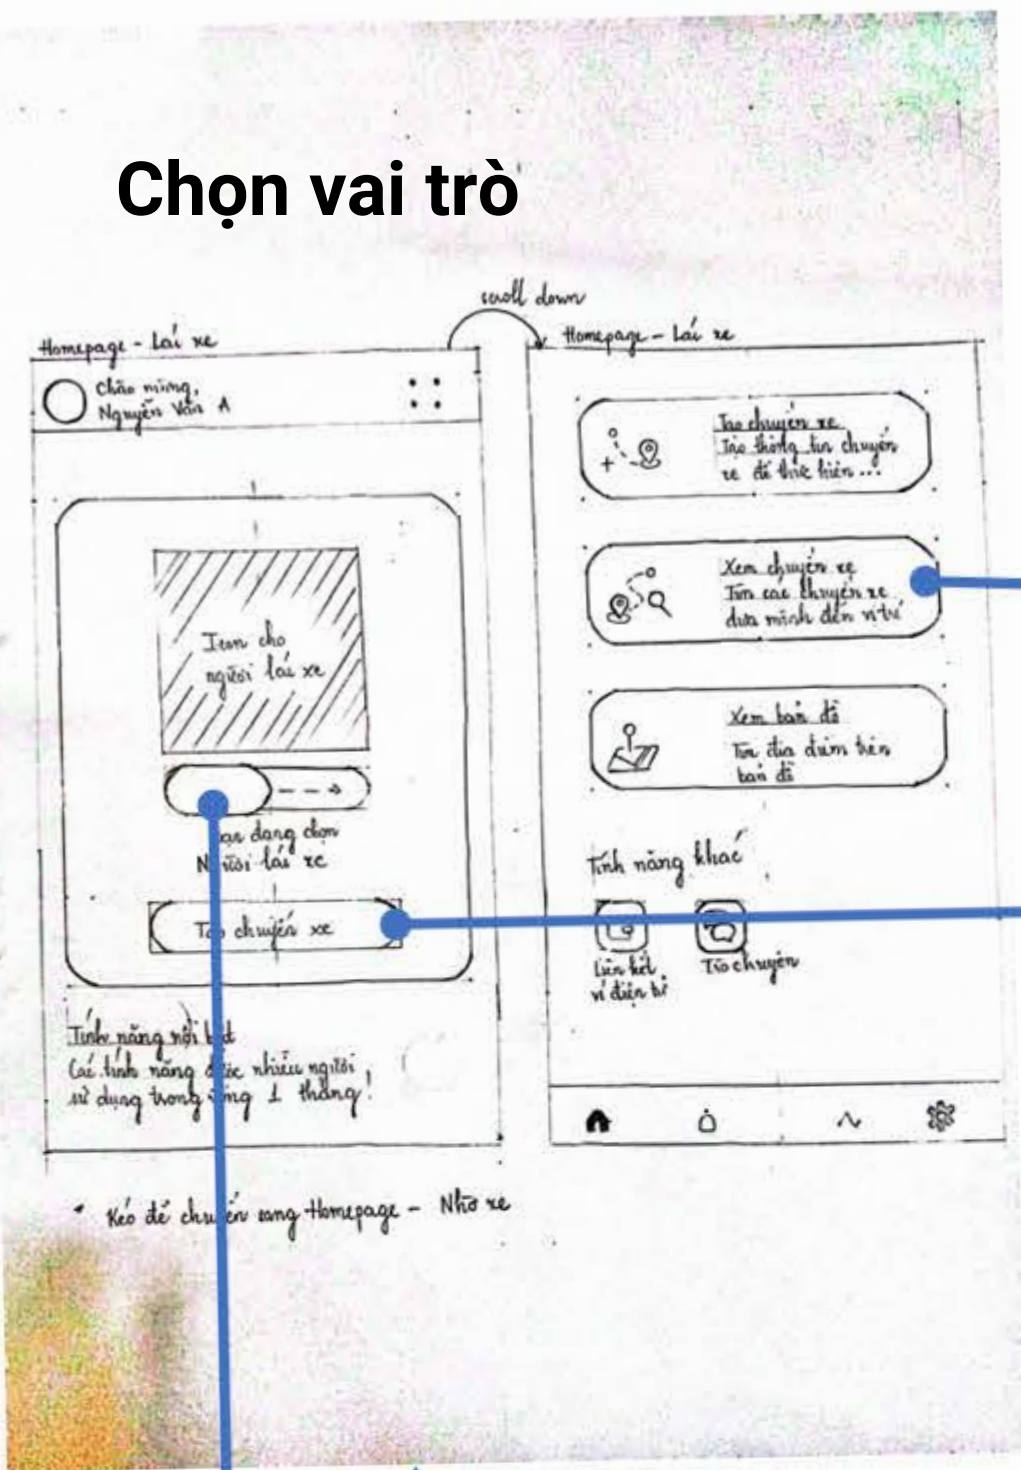 Chọn vai trò
scroll down
Homepage - Lái xe
Chào mừng,
Nguyễn Văn A
Icon cho
người lái xe
đang chọn
Người lái xe
Tạo chuyến xe
Tính năng nổi bật
Các tính năng được nhiều người
sử dụng trong vòng 1 tháng!
* Kéo để chuyển sang Homepage - Nhờ xe
Homepage - Lái xe
Tạo chuyến xe
Tạo thông tin chuyến
xe để thực hiện...
Xem chuyến xe
Tìm các chuyến xe
đưa mình đến vị trí
Xem bản đồ
Tìm địa điểm trên
bản đồ
Tính năng khác
Liên kết
ví điện tử
Trò chuyện